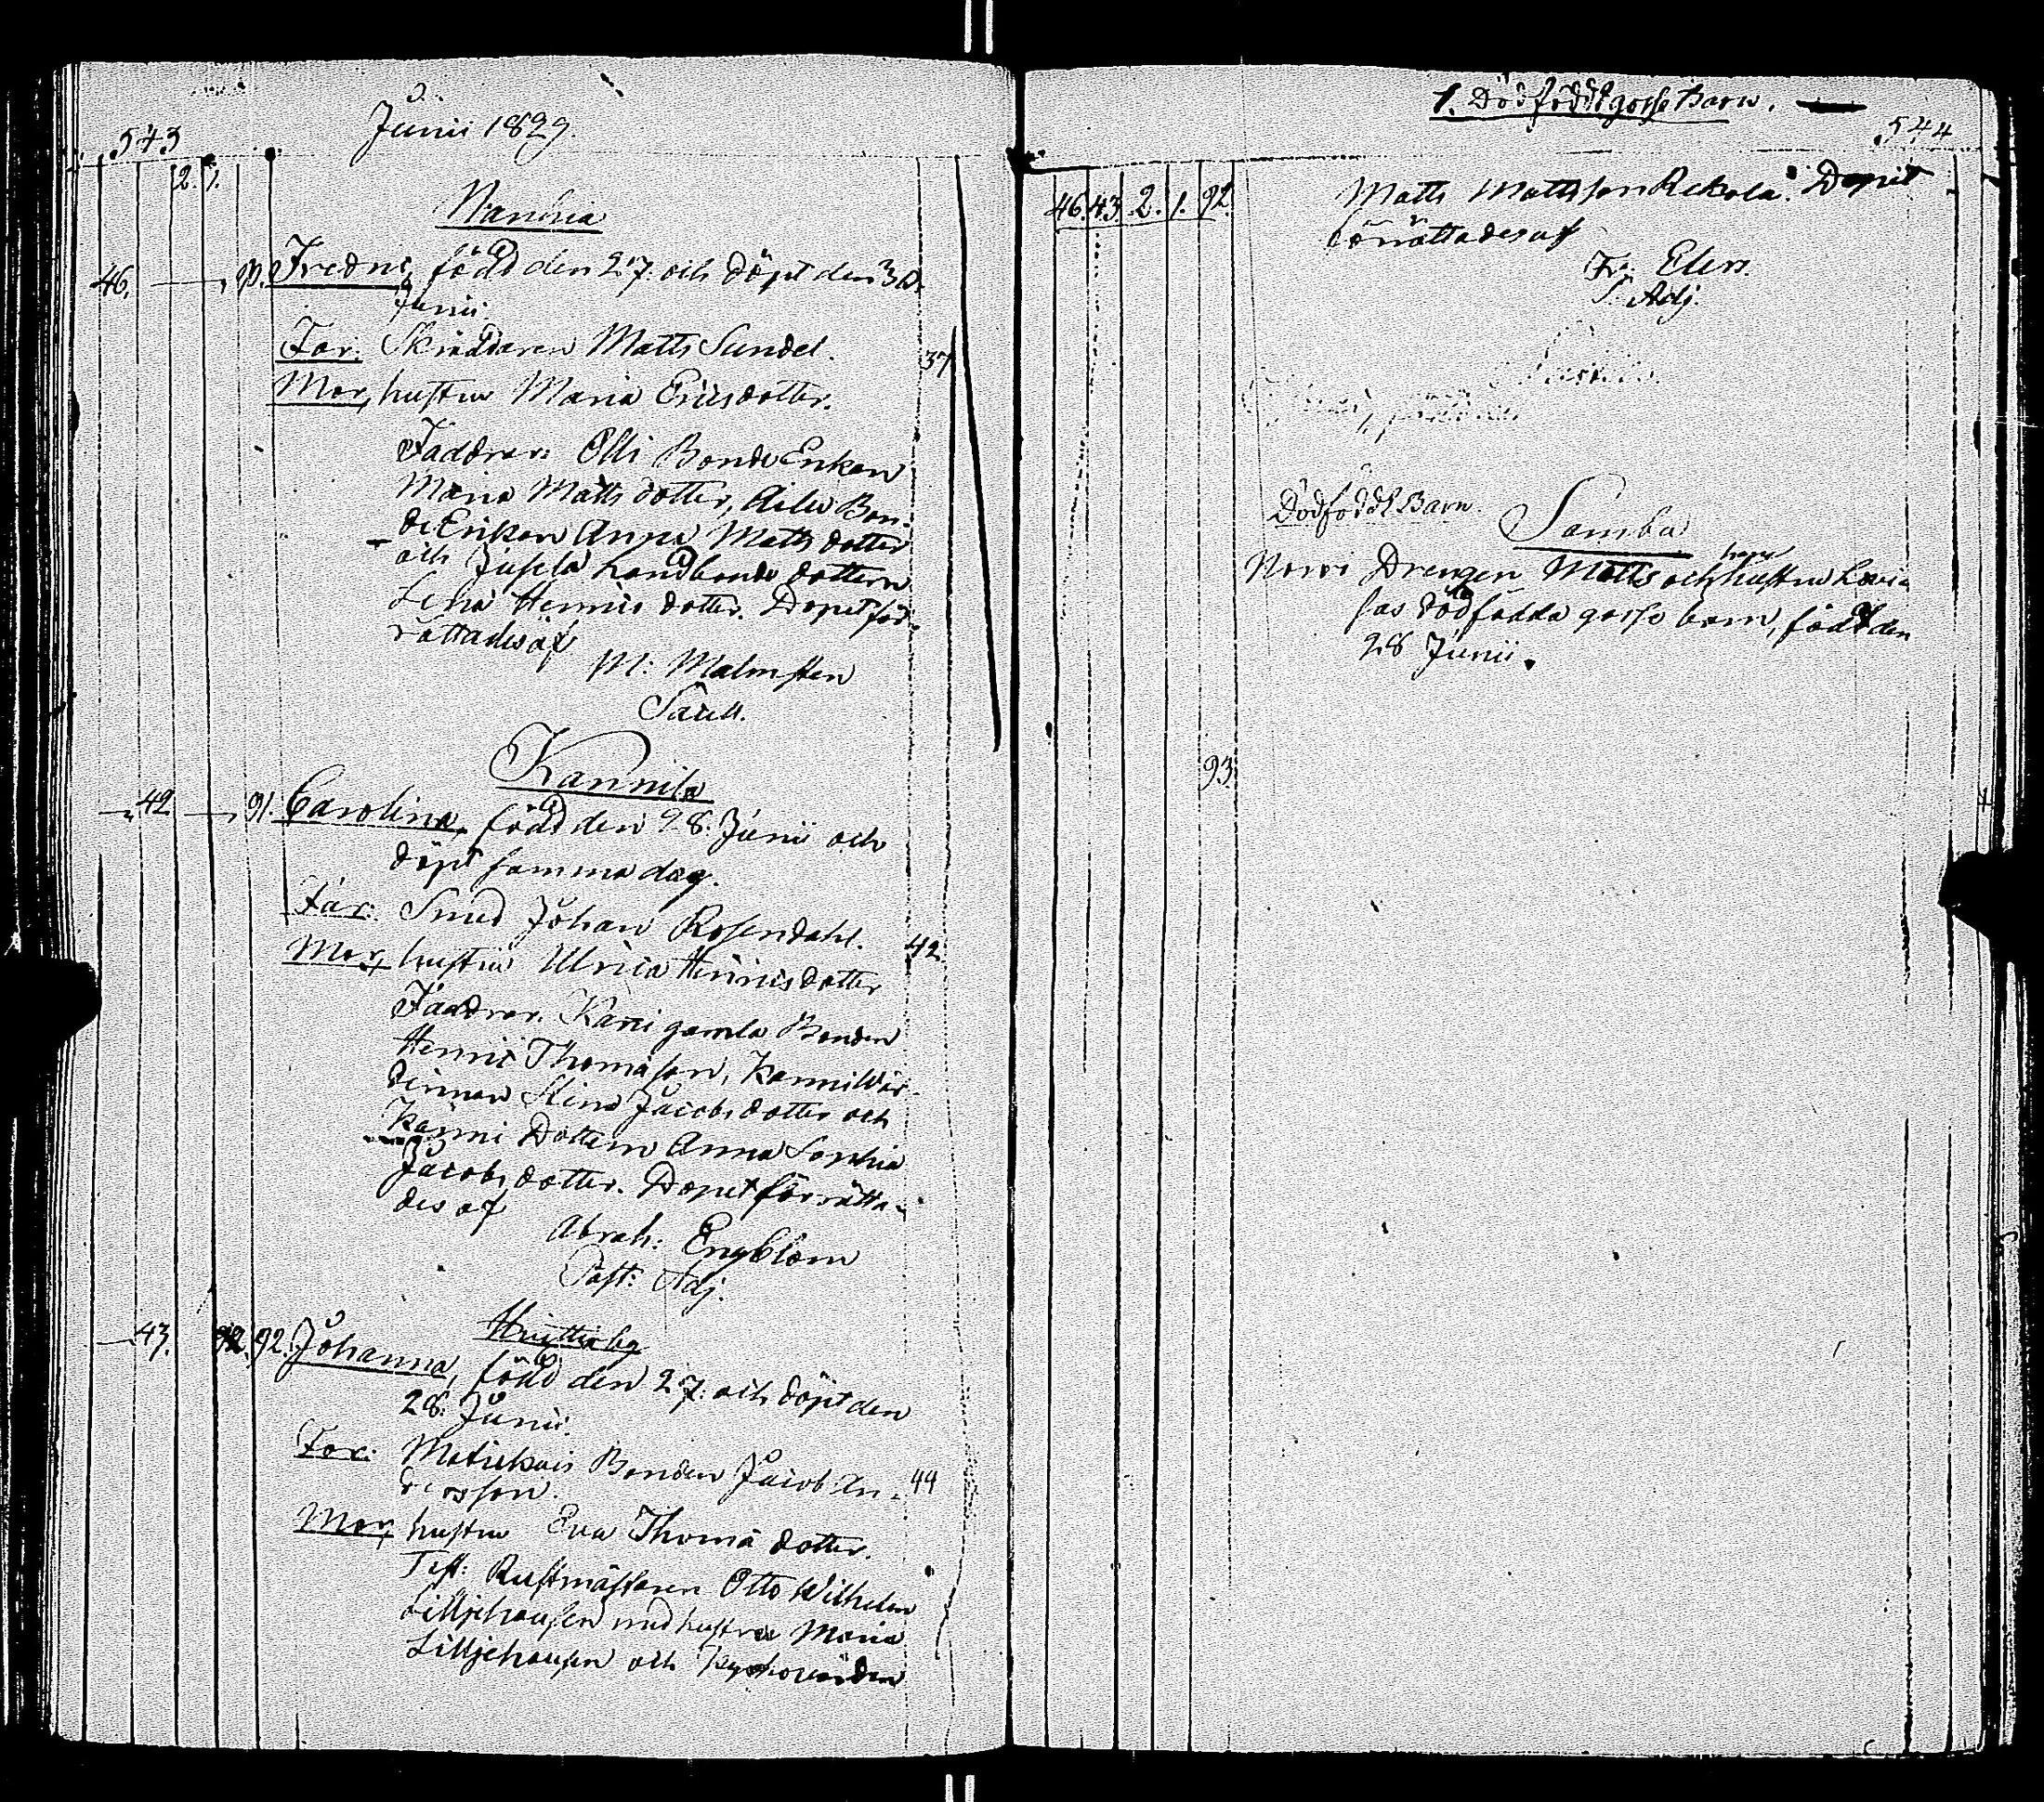 543
Junii 1829.
2. 1.
Nanhia
46. 90. Fredric, född den 27. och döpt den 30.
Junii.
Far: Skräddaren Matts Sundel. 37
Mor, hustru Maria Ericsdotter.
Faddrar: Olli Bonde Enkan
Maria Matts dotter, Aila Bon-
de Enkan Anna Matts dotter
och Jusela handbonde dottern
Lena Henrics dotter. Dopet för-
rättades af
M: Malmsten
Sacell.
Kannila
42. 91. Carolina, född den 28. Junii och
döpt samma dag.
Far: Smed Johan Rosendahl. 42
Mor, hustru Ulrica Henricsdotter
Faddrar. Kanni gamla Bonden
Henric Thomasson, Kanni Wär-
dinnan Stina Jacobs dotter och
Kanni Dottern Anna Sophia
Jacobs dotter. Dopet förrätta-
des af
Abrah: Engblom
Past: Adj.
Hvittisby
43. 92. 92. Johanna, född den 27. och döpt den
28. Junii.
Far: Bonden Jacob An- 44
dersson.
Mor, hustru Eva Thomä dotter.
Test: Rustmästaren Otto Wilhelm
Lilljehousen med hustru Maria
Lilljehousen och Kyrkovärden
1. Dödföddt gosse Barn.
544
46. 43. 2. 1. 92. Matts Mattsson Rekola. Dopet
förrättades af
Fr: Elers.
P. Adj.
Dödföddt Barn. Samba
Norri Drengen Matts och hans hustru Lovi-
sas dödfödda gosse barn, född den
28 Junii.
93.